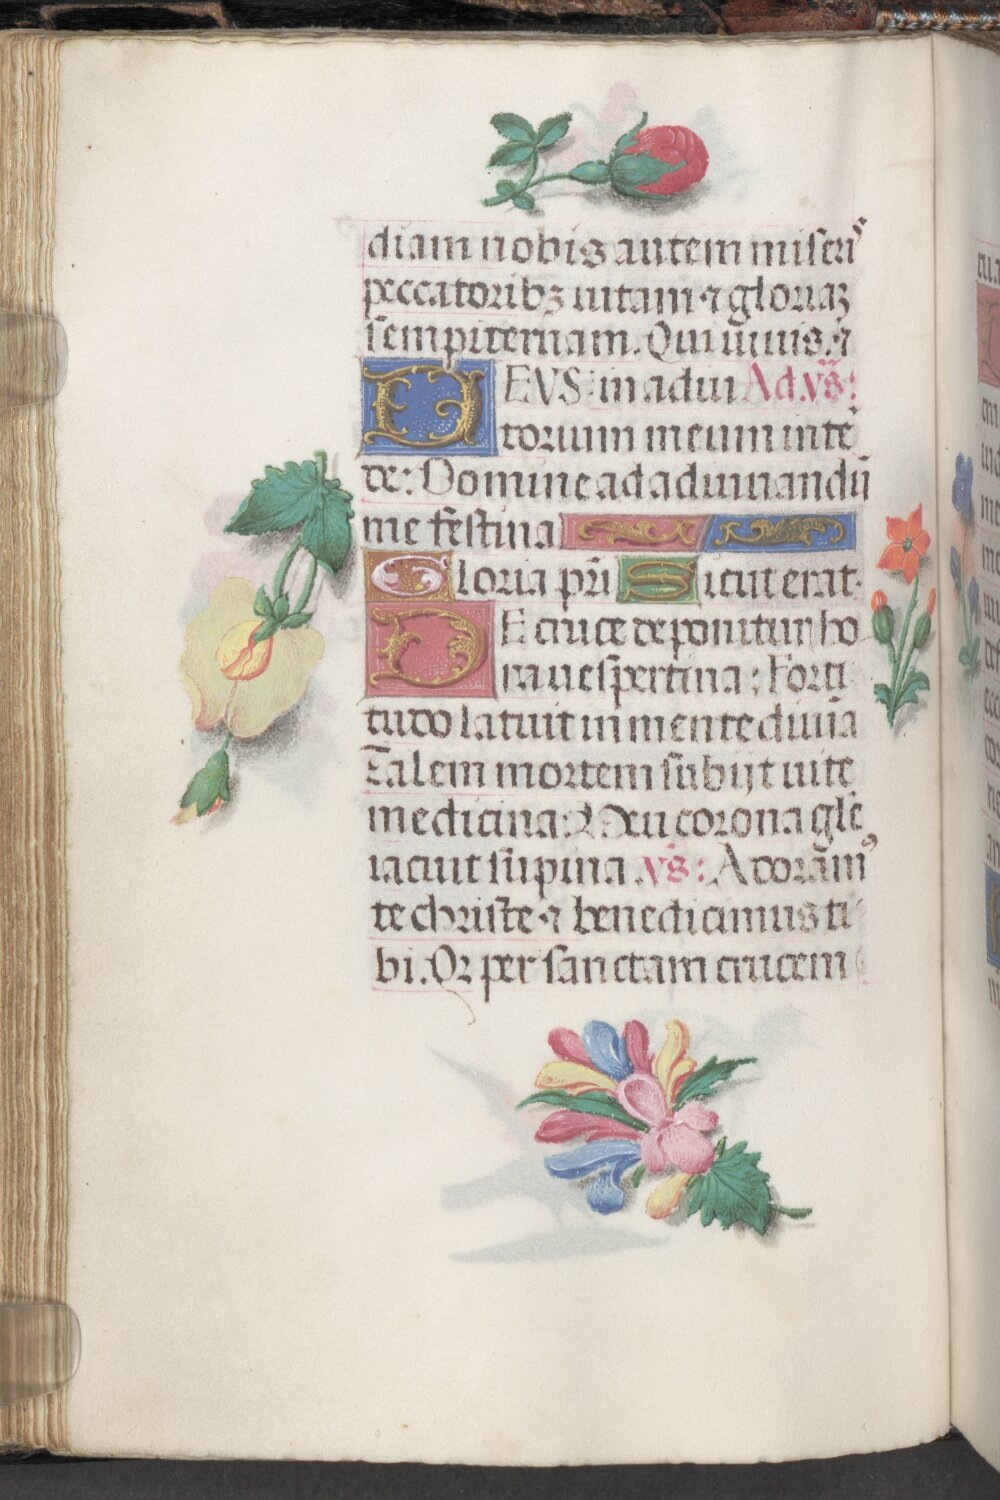 diam nobis autem miseris
peccatoribꝫ uitam ⁊ gloriaꝫ
sempiternam. Qui uiuis. ⁊
DEVS: in adiu Ad. vs̄:
torium meum inte
de: Domine ad adiuuandū
me festina
Gloria pr̄i Sicut erat.
DE cruce deponitur ho
ra uespertina: Forti
tudo latuit in mente diuīa
Talem mortem subijt uite
medicina: Heu corona glē
iacuit supina. vs̄: Adoram⁹
te christe ⁊ benedicimus ti
bi. Qꝛ per sanctam crucem